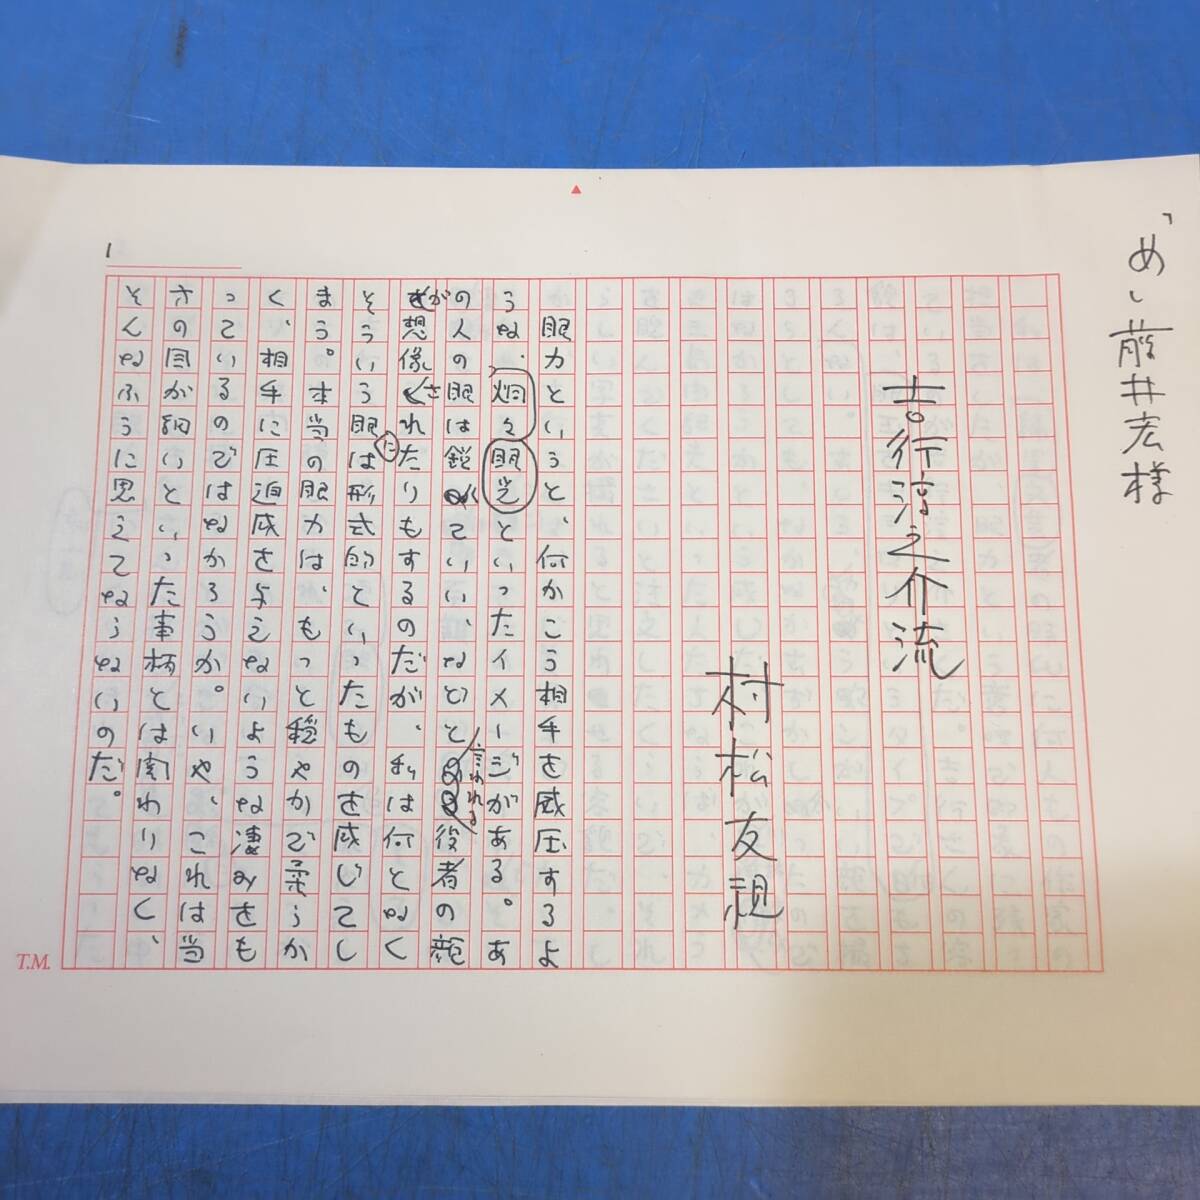 「め」
井宏様
吉行淳之介流
村松友視
眼力というと、何かこう相手を威圧するよ
うな、炯々眼光といったイメージがある。あ
の人の眼は鋭くていい、などと言われる役者の顔
が想像されたりもするのだが、私は何となく
そういう眼には形式的といったものを感じてし
まう。本当の眼力は、もっと穏やかで柔らか
く、相手に圧迫感を与えないような凄みをも
っているのではなかろうか。いや、これは当
方の目が細いといった事柄とは関わりなく、
そんなふうに思えてならないのだ。
1
T.M.